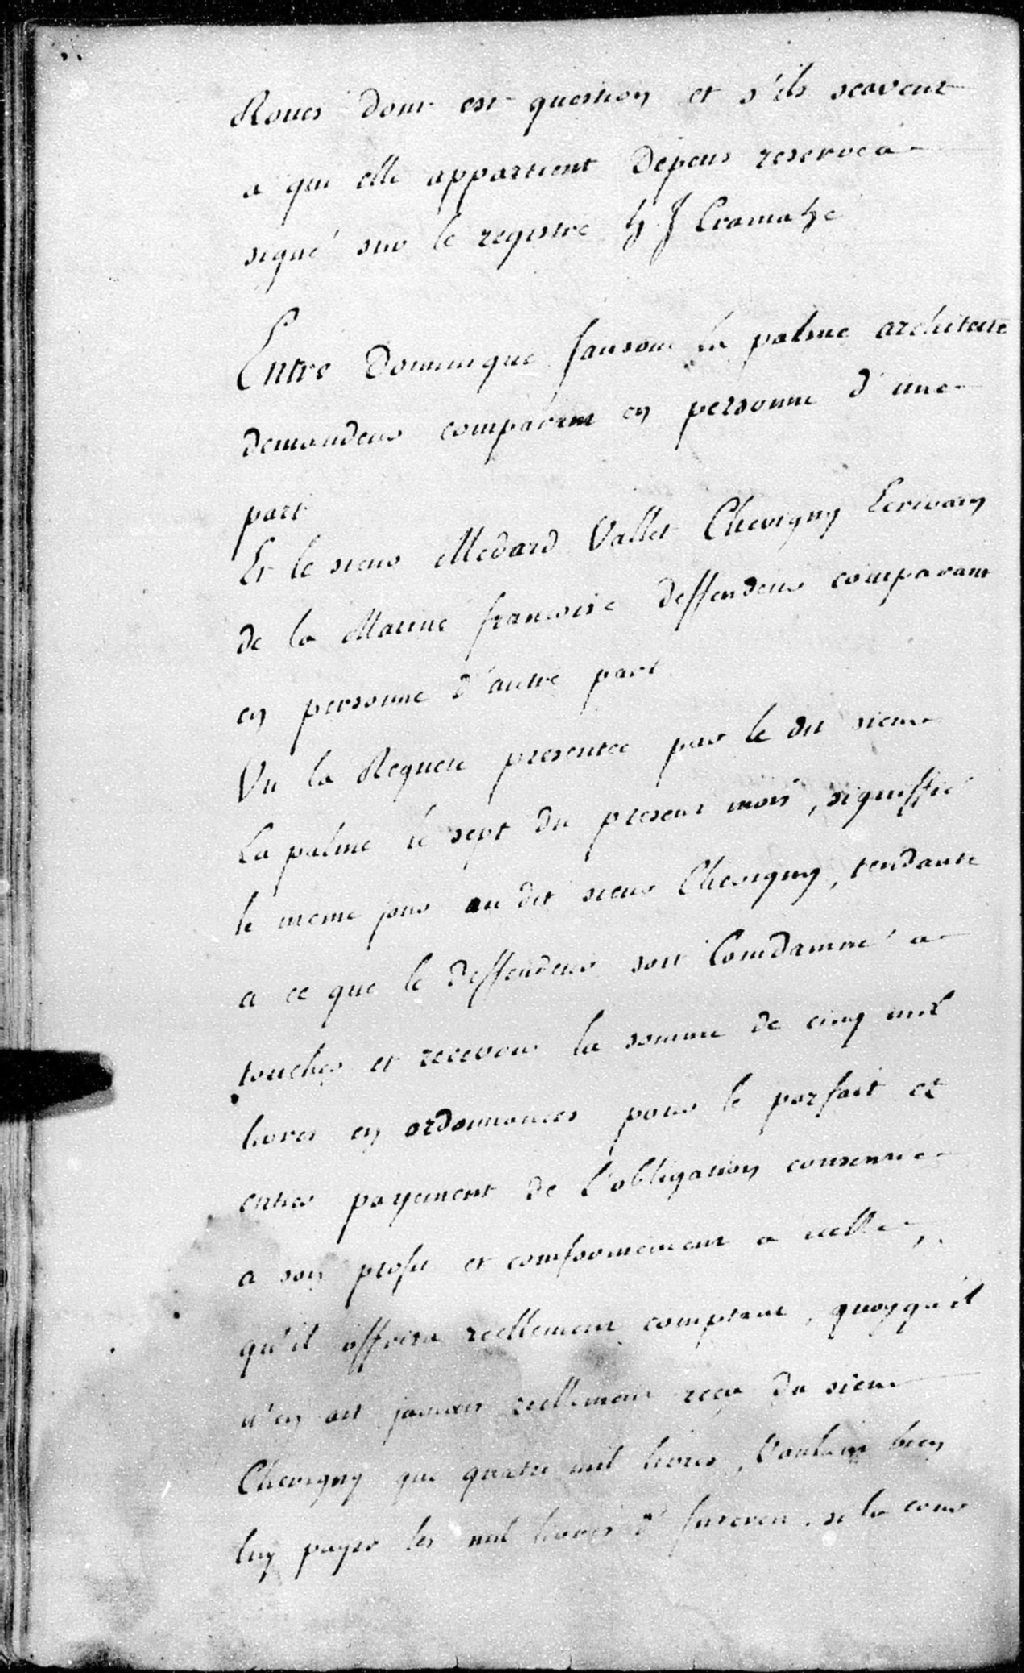 Roues dont est question et s'ils scavent
a qui elle appartient dépens reservés
signé sur le registre h J Cramahe
Entre Dominique Janson la palme architecte
demandeur comparant en personne d'une
part
Et le sieur Medard Vallet Chevigny Ecrivain
de la Marine francoise deffendeur comparant
en personne d'autre part
Vu la Requete presentée par le dit sieur
La palme le sept du present mois, signiffié
le meme jour au dit sieur Chevigny, tendante
a ce que le deffendeur soit Condamné a
toucher et recevoir la somme de cinq mil
livres en ordonnances pour le parfait et
entier payement de l'obligation consentie
a son profit et conformement a icelle,
qu'il offrira reellement comptant, quoyqu'il
n'en ait jamais reellement reçu du sieur
Chevigny que quatre mil livres, Voulant bien
luy payer les mil livres d' si la cour